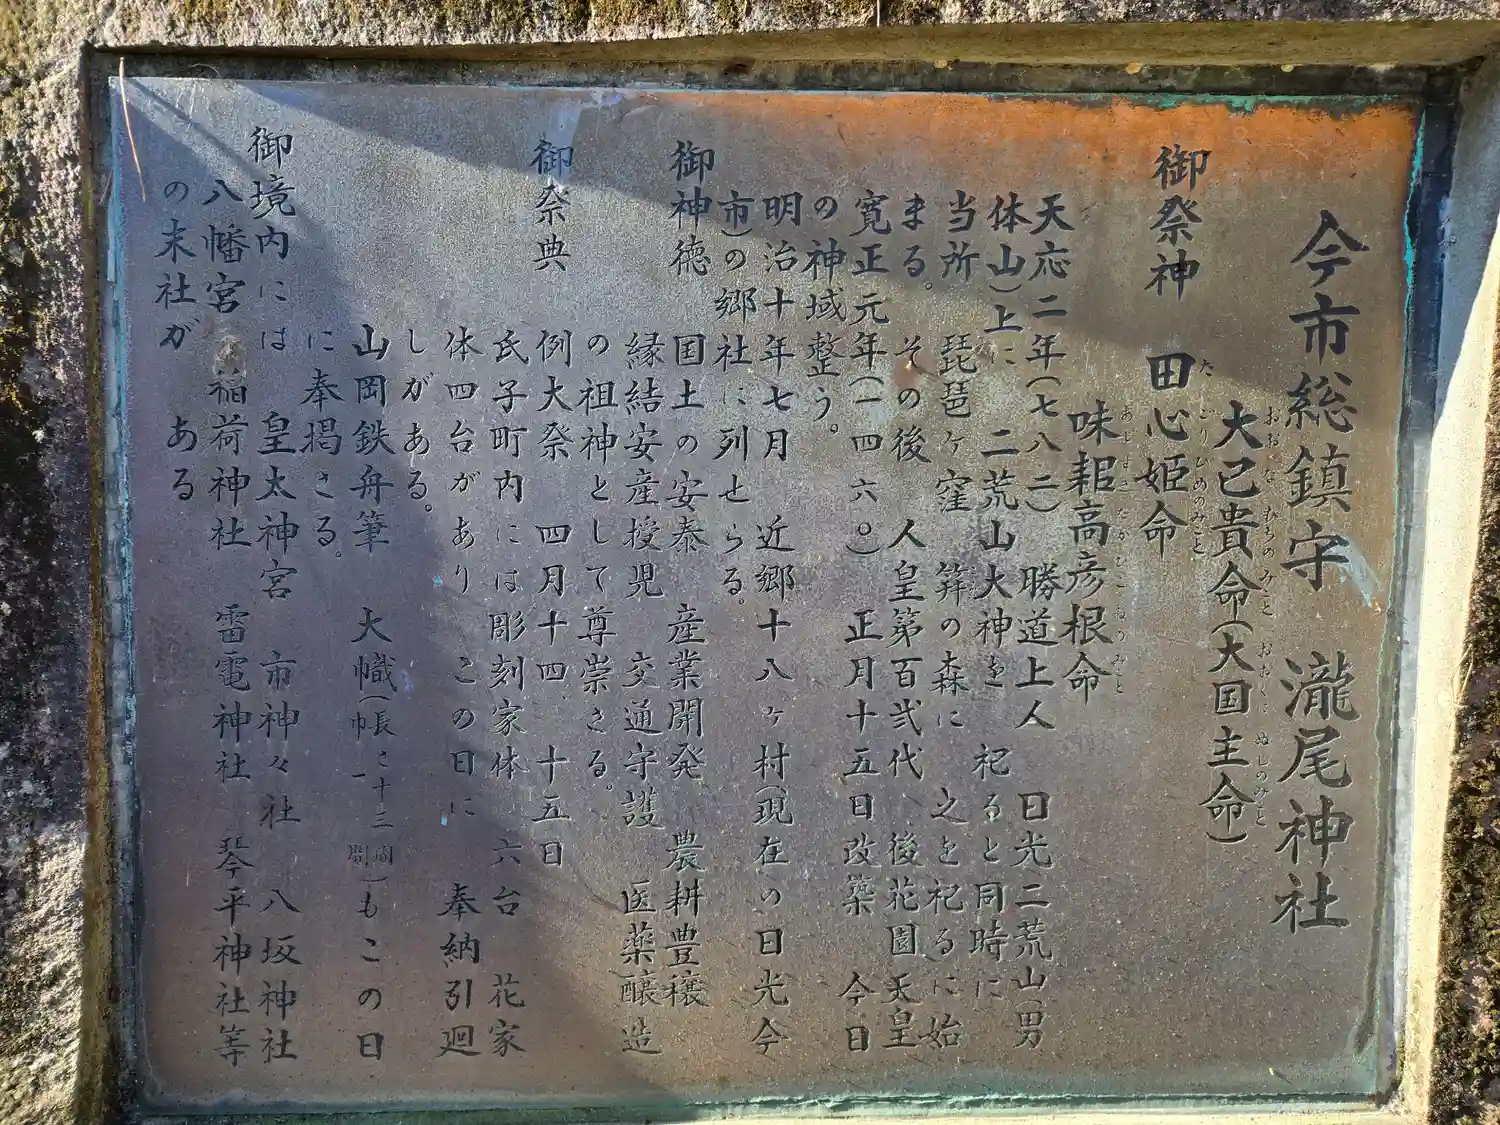 今市総鎮守 瀧尾神社
御祭神 大己貴命(大国主命)
おおなむちのみこと おおくにぬしのみこと
田心姫命
たごりひめのみこと
味耜高彦根命
あじすきたかひこねのみこと
天応二年(七八二) 勝道上人 日光二荒山(男
体山)上に 二荒山大神を 祀ると同時に
当所 琵琶ヶ窪 笄の森に 之を祀るに始
まる。その後 人皇第百弐代、後花園天皇
寛正元年(一四六〇) 正月十五日改築 今日
の神域整う。
明治十年七月 近郷十八ヶ村(現在の日光今
市)の郷社に列せらる。
御神徳 国土の安泰 産業開発 農耕豊穣
縁結安産授児 交通守護 医薬醸造
の祖神として尊崇さる。
御祭典 例大祭 四月十四、十五日
氏子町内には彫刻家体 六台 花家
体四台があり この日に 奉納引廻
しがある。
山岡鉄舟筆 大幟(帳さ十三間一間)もこの日
に奉掲さる。
御境内には 皇太神宮 市神々社 八坂神社
八幡宮 稲荷神社 雷電神社 琴平神社等
の末社が ある